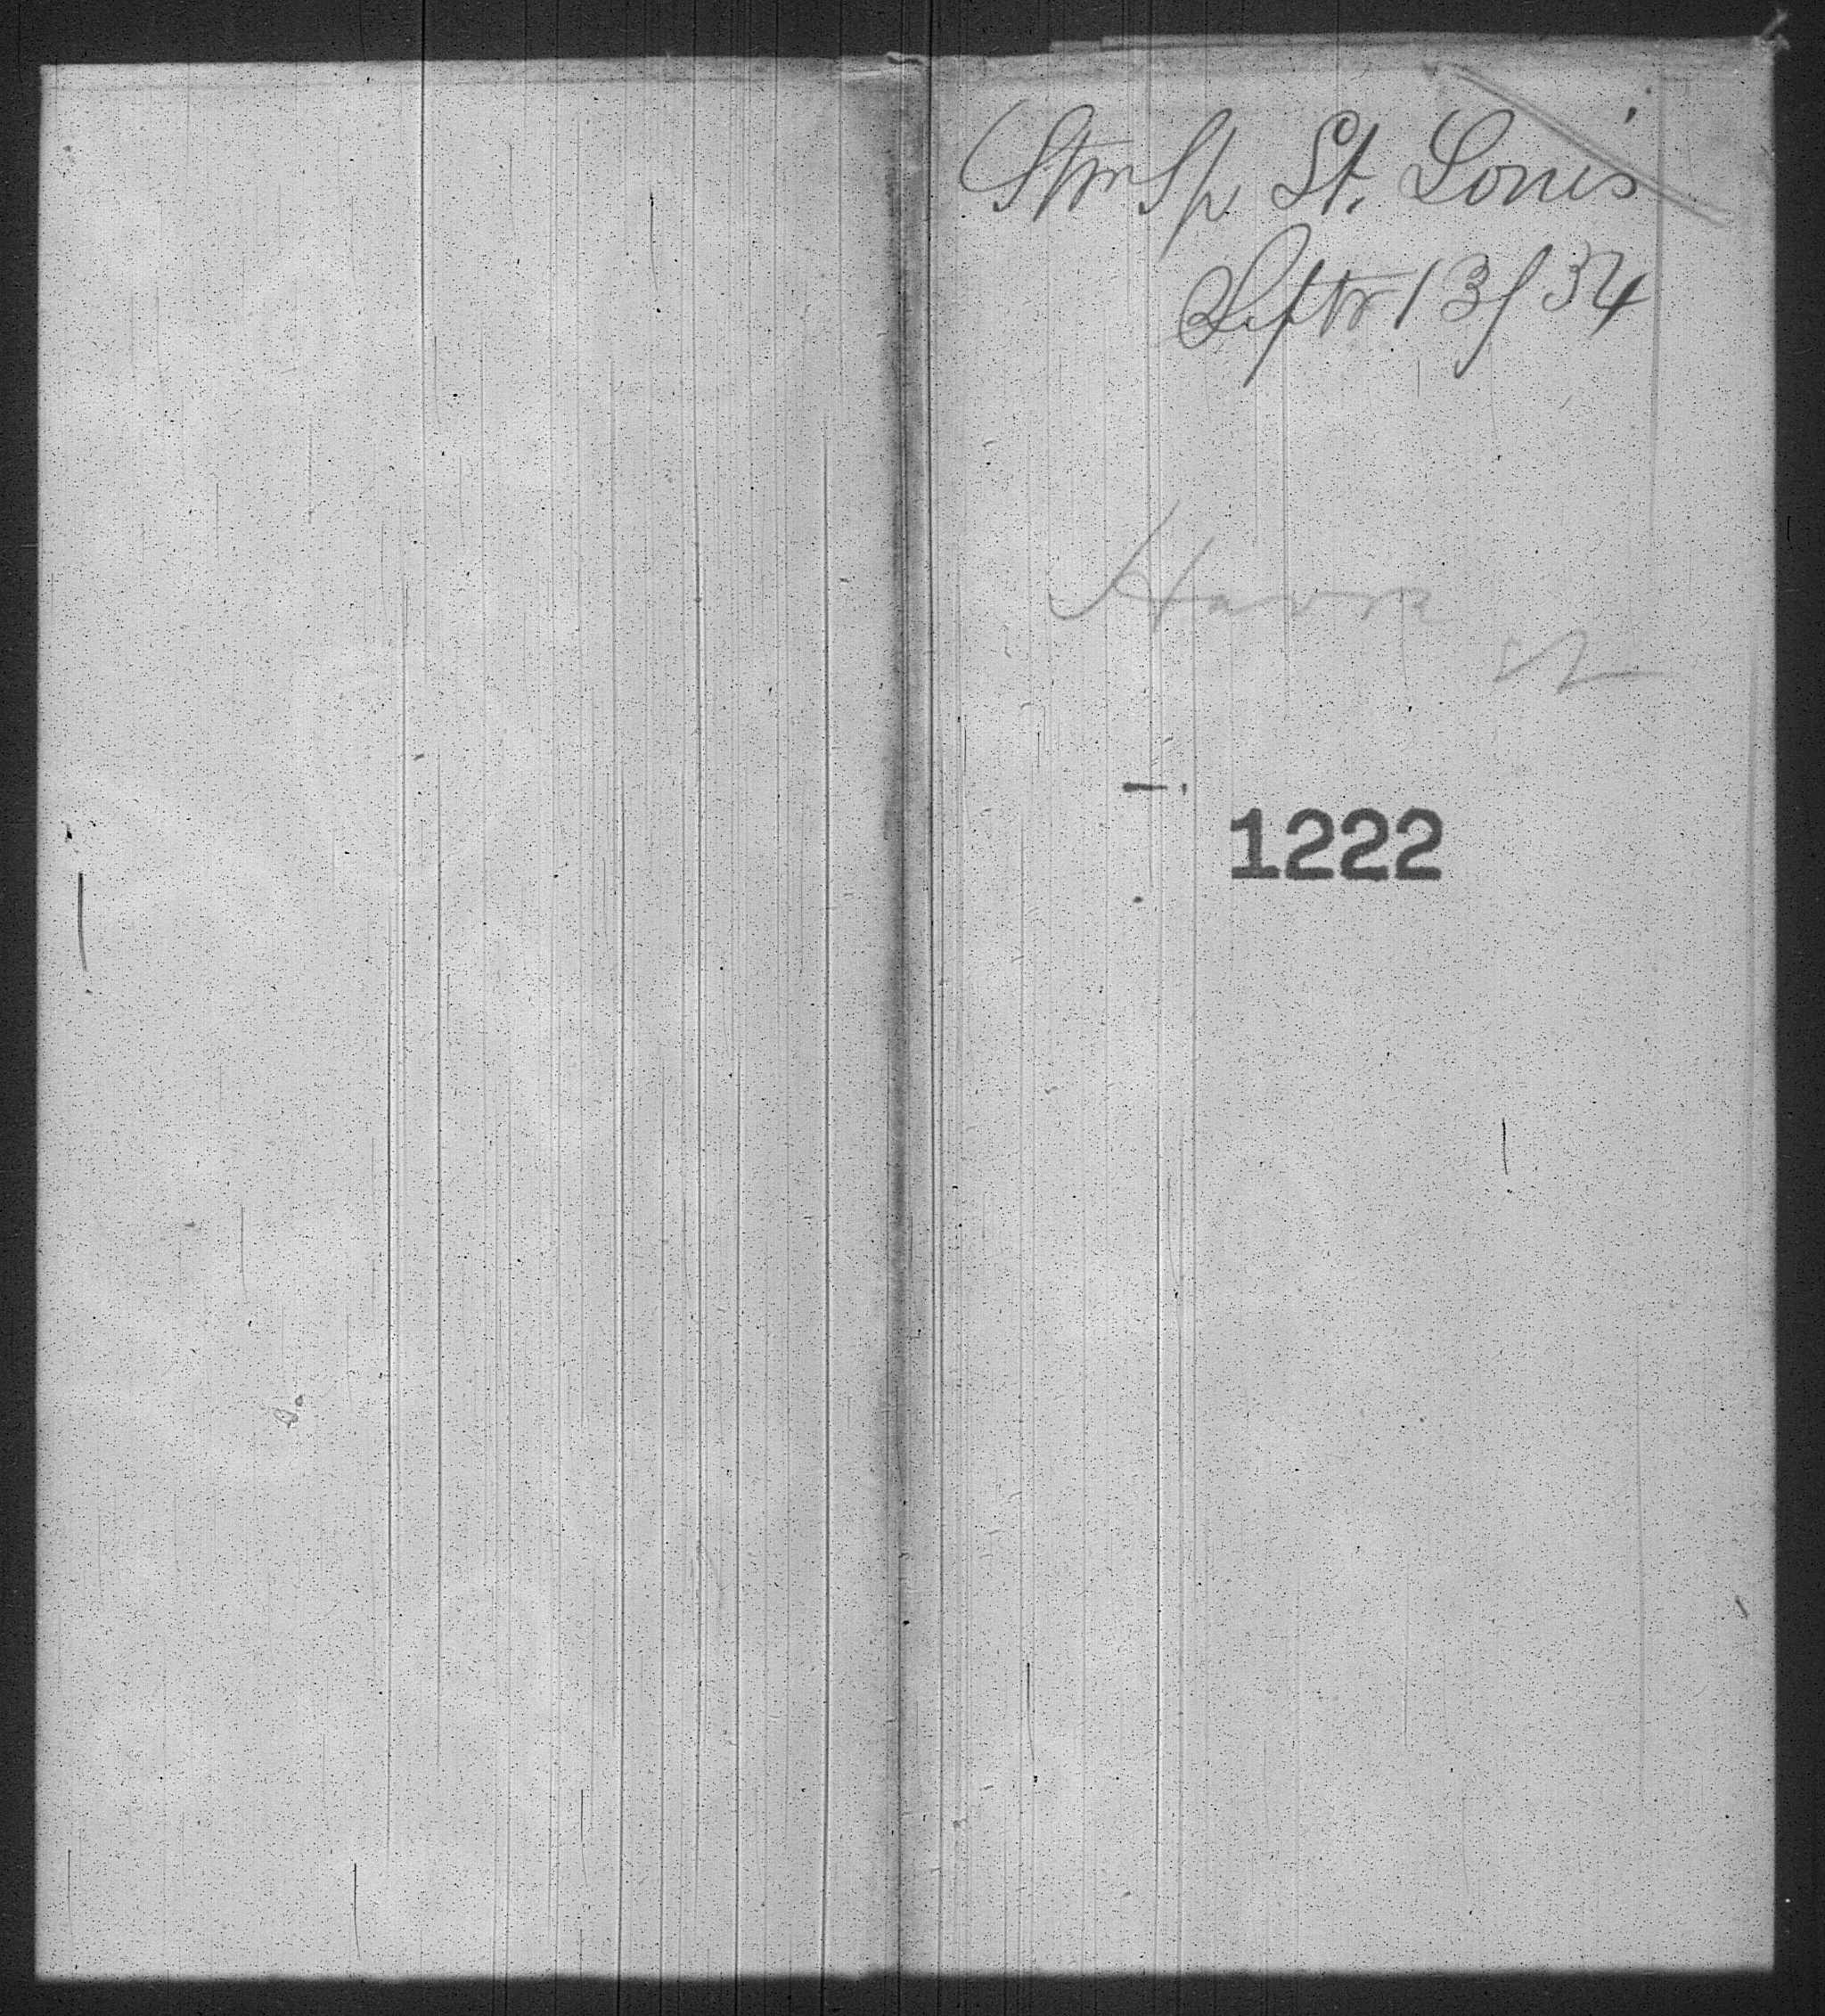 StmSp St. Louis
Septr 13/34
Havre
1222